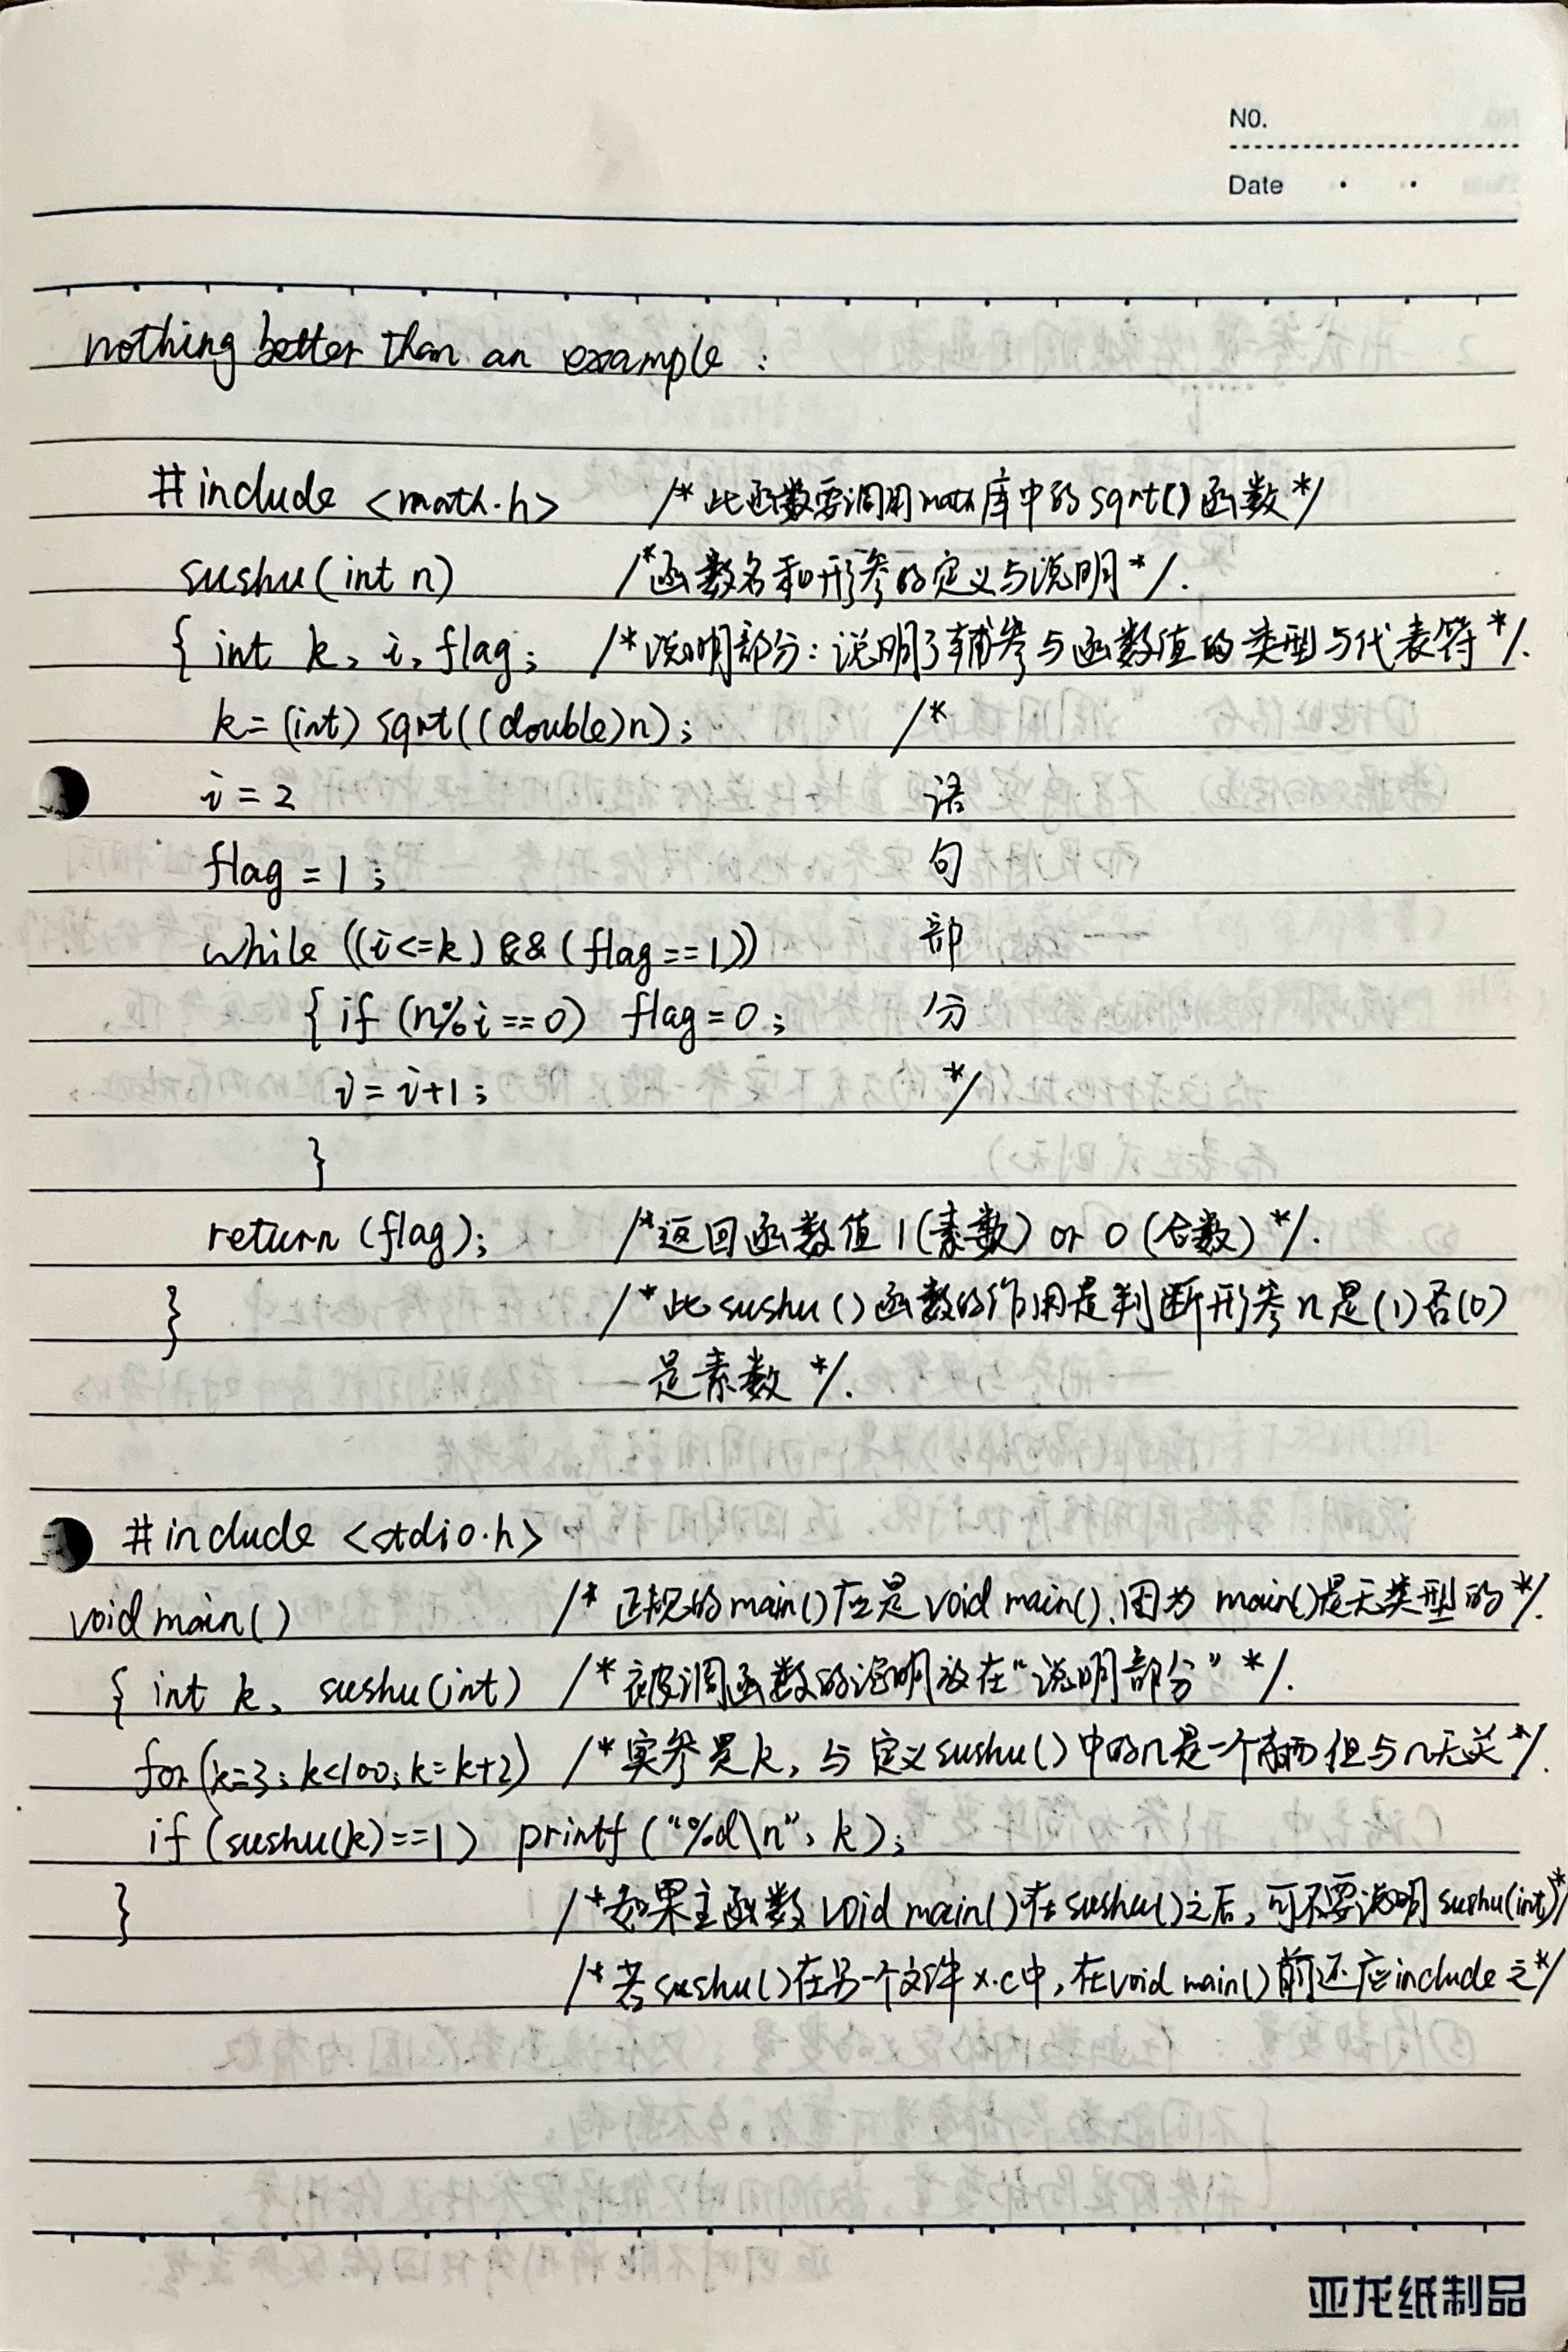 NO.
Date
nothing better than an example:
#include <math.h> /*此函数要调用math库中的sqrt()函数*/
sushu(int n) /*函数名和形参的定义与说明*/.
{ int k, i, flag; /*说明部分:说明了辅参与函数值的类型与代表符*/.
k=(int) sqrt((double)n); /*
i=2 语
flag=1; 句
while ((i<=k) && (flag==1)) 部
{ if (n%i==0) flag=0; 分
i=i+1; */
}
return (flag); /*返回函数值1(素数) or 0(合数)*/.
} /*此sushu()函数的作用是判断形参n是(1)否(0)
是素数*/.
#include <stdio.h>
void main() /*正规的main()应是void main(),因为main()是无类型的*/.
{ int k, sushu(int) /*被调函数的说明放在“说明部分”*/.
for(k=3;k<100;k=k+2) /*实参是k,与定义sushu()中的n是一个东西但与n无关*/.
if (sushu(k)==1) printf("%d\n", k);
} /*如果主函数void main()在sushu()之后,可不要说明sushu(int)*/
/*若sushu()在另一个文件x.c中,在void main()前还应include之*/
亚龙纸制品